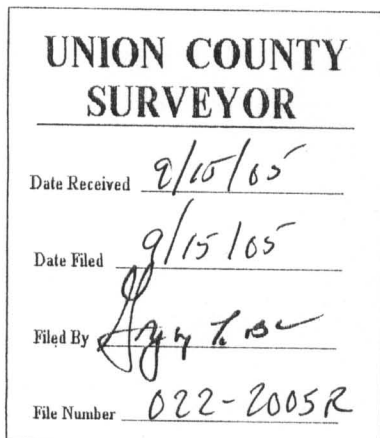 UNION COUNTY
SURVEYOR
Date Received 9/15/05
Date Filed 9/15/05
Filed By
File Number 022-2005R